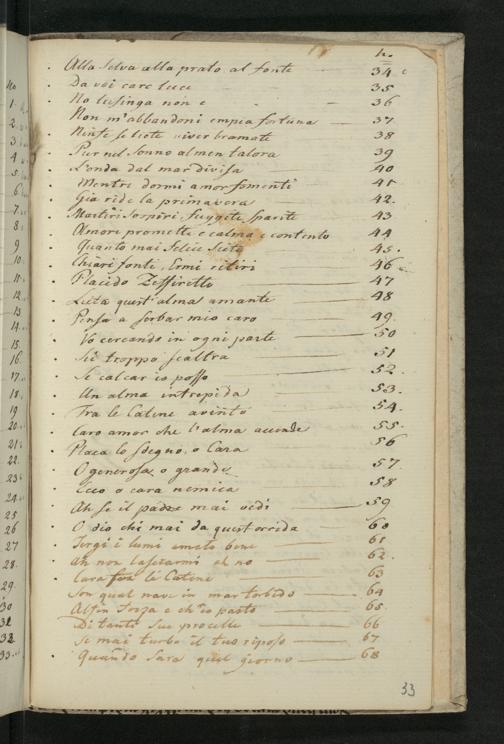 N.
Alla Selva alla prato al fonte 34
Da voi care luci 35
No lusinga non e 36
Non m'abbandoni empia fortuna 37
Niente se liete viver bramate 38
Pur nel Sonno almen talora 39
L'onda dal mar divisa 40
Mentre dormi amor fomenti 41
Gia ride la primavera 42.
Martiri Sospiri, fuggite, sparite 43
Amore promette e calma e contento 44
Quanto mai felice siete 45.
Chiari fonti, Ermi ritiri 46
Placido Zeffiretto 47
Lieta quest'alma amante 48
Pensa a serbar mio caro 49.
Vo cercando in ogni parte 50
Sei troppo scaltra 51
Se calcar io posso 52.
Un alma intrepida 53.
Fra le Catene avinto 54.
Caro amor che l'alma accende 55.
Placa lo sdegno o Cara 56
O generosa o grande 57
Ecco o cara nemica 58
Ah se il padre mai vedi 59
O dio chi mai da quest'orrida 60
Tergi i lumi amato bene 61
Ah non lasciarmi el no 62.
Cara le Catene 63
Son qual nave in mar torbido 64
Alfin forza e ch'io parto 65
Di tante sue procelle 66
Se mai turbo il tuo riposo 67
Quando sara quel giorno 68
33
1.
2
3
4
5.
6.
7.
8.
9
10.
11.
12
13
14.
15.
16.
17.
18.
19
20.
21.
22.
23
24.
25
26
27
28.
29.
30
31
32.
33